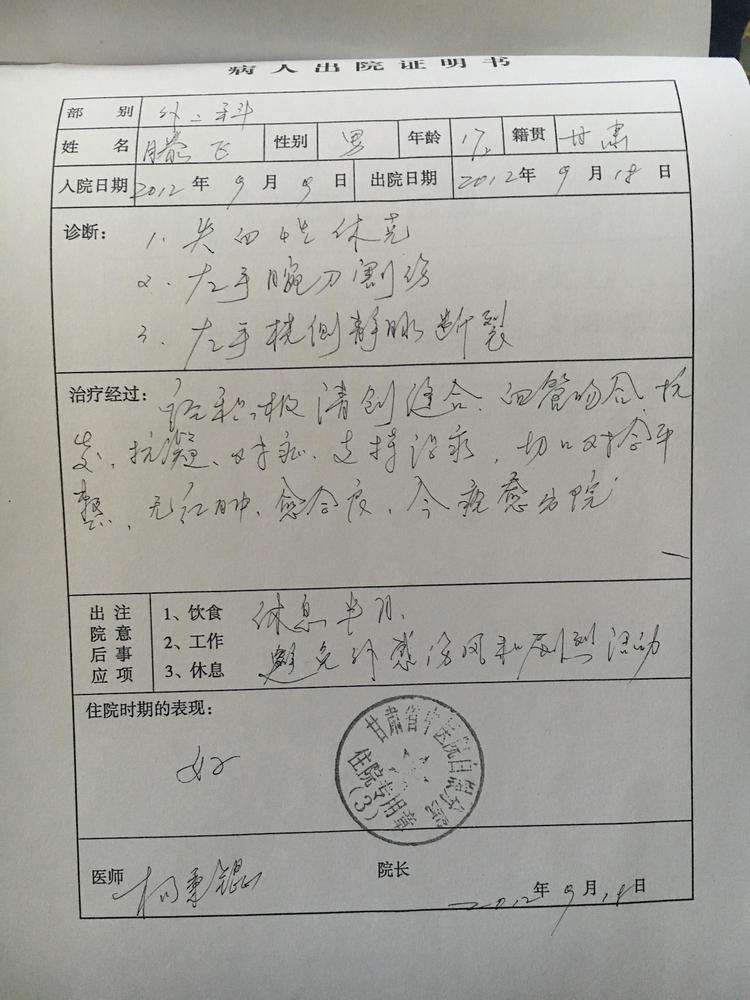 病人出院证明书
部别 外二科
姓名 滕飞 性别 男 年龄 17 籍贯 甘肃
入院日期 2012年9月9日 出院日期 2012年9月18日
诊断: 1. 失血性休克
2. 左手腕刀割伤
3. 左手桡侧静脉断裂
治疗经过: 经积极清创缝合、血管吻合、抗
炎、抗凝、对症、支持治疗,切口对合平
整,无红肿,愈合良,今痊愈出院
出院后应注意事项
1、饮食 休息半月.
2、工作 避免外感伤风和剧烈活动
3、休息
住院时期的表现:
好
甘肃省中医院白银分院
住院专用章
(3)
医师 杨秉锟 院长
2012年9月18日